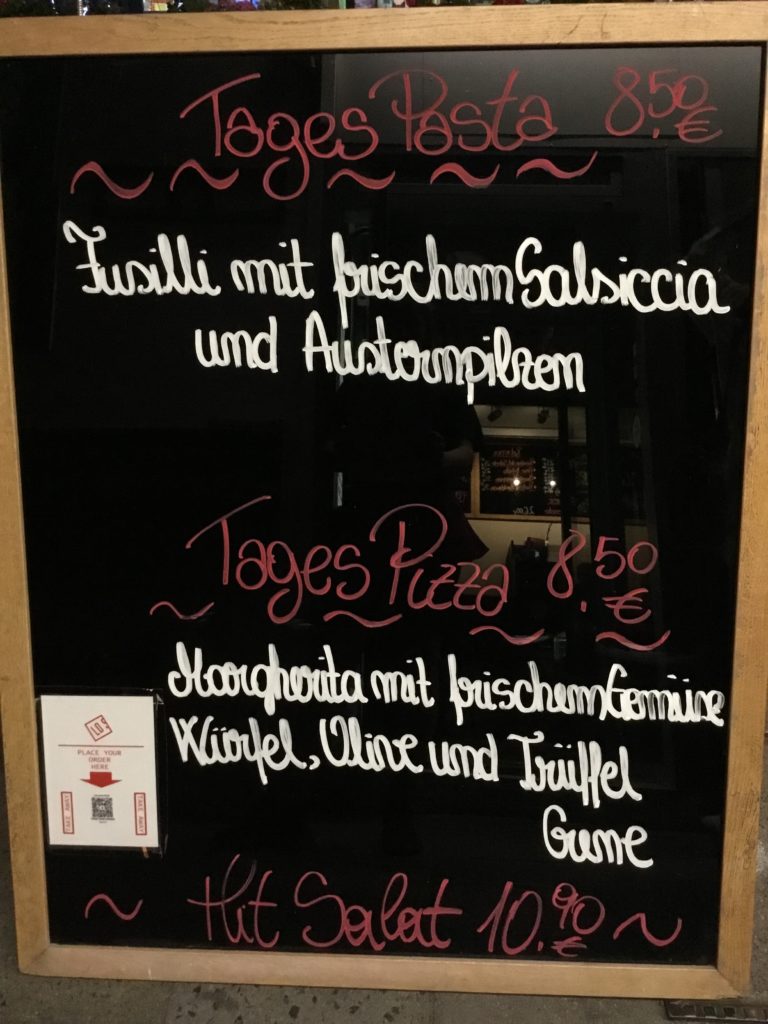 Tages Pasta 8,50 €
Fusilli mit frischem Salsiccia
und Austernpilzen
Tages Pizza 8,50 €
Margherita mit frischem Gemüse
Würfel, Olive und Trüffel
Creme
LOS
PLACE YOUR
ORDER
HERE
TAKE AWAY
TAKE AWAY
Hit Salat 10,90 €